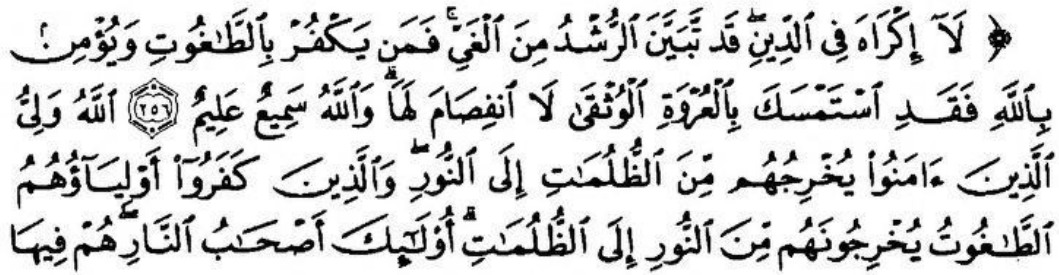 ۞ لَآ إِكْرَاهَ فِى ٱلدِّينِ ۖ قَد تَّبَيَّنَ ٱلرُّشْدُ مِنَ ٱلْغَىِّ ۚ فَمَن يَكْفُرْ بِٱلطَّـٰغُوتِ وَيُؤْمِنۢ
بِٱللَّهِ فَقَدِ ٱسْتَمْسَكَ بِٱلْعُرْوَةِ ٱلْوُثْقَىٰ لَا ٱنفِصَامَ لَهَا ۗ وَٱللَّهُ سَمِيعٌ عَلِيمٌ ﴿٢٥٦﴾ ٱللَّهُ وَلِىُّ
ٱلَّذِينَ ءَامَنُوا۟ يُخْرِجُهُم مِّنَ ٱلظُّلُمَـٰتِ إِلَى ٱلنُّورِ ۖ وَٱلَّذِينَ كَفَرُوٓا۟ أَوْلِيَآؤُهُمُ
ٱلطَّـٰغُوتُ يُخْرِجُونَهُم مِّنَ ٱلنُّورِ إِلَى ٱلظُّلُمَـٰتِ ۗ أُو۟لَـٰٓئِكَ أَصْحَـٰبُ ٱلنَّارِ ۖ هُمْ فِيهَا